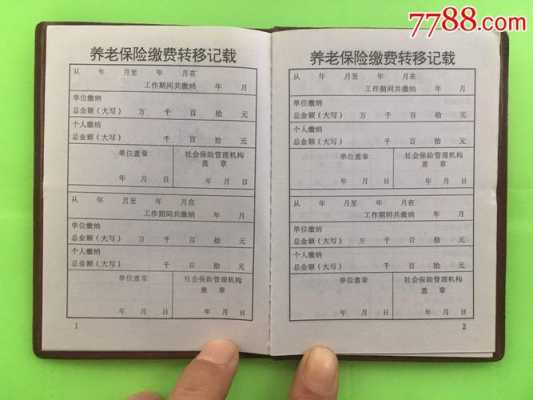 7788.com
养老保险缴费转移记载
从 年 月至 年 月在
工作期间共缴纳 年 月
单位缴纳
总金额（大写） 万 千 百 拾 元
个人缴纳
总金额（大写） 千 百 拾 元
单位盖章 社会保险管理机构
盖 章
年 月 日 年 月 日
从 年 月至 年 月在
工作期间共缴纳 年 月
单位缴纳
总金额（大写） 万 千 百 拾 元
个人缴纳
总金额（大写） 千 百 拾 元
单位盖章 社会保险管理机构
盖 章
年 月 日 年 月 日
1
养老保险缴费转移记载
从 年 月至 年 月在
工作期间共缴纳 年 月
单位缴纳
总金额（大写） 万 千 百 拾 元
个人缴纳
总金额（大写） 千 百 拾 元
单位盖章 社会保险管理机构
盖 章
年 月 日 年 月 日
从 年 月至 年 月在
工作期间共缴纳 年 月
单位缴纳
总金额（大写） 万 千 百 拾 元
个人缴纳
总金额（大写） 千 百 拾 元
单位盖章 社会保险管理机构
盖 章
年 月 日 年 月 日
2